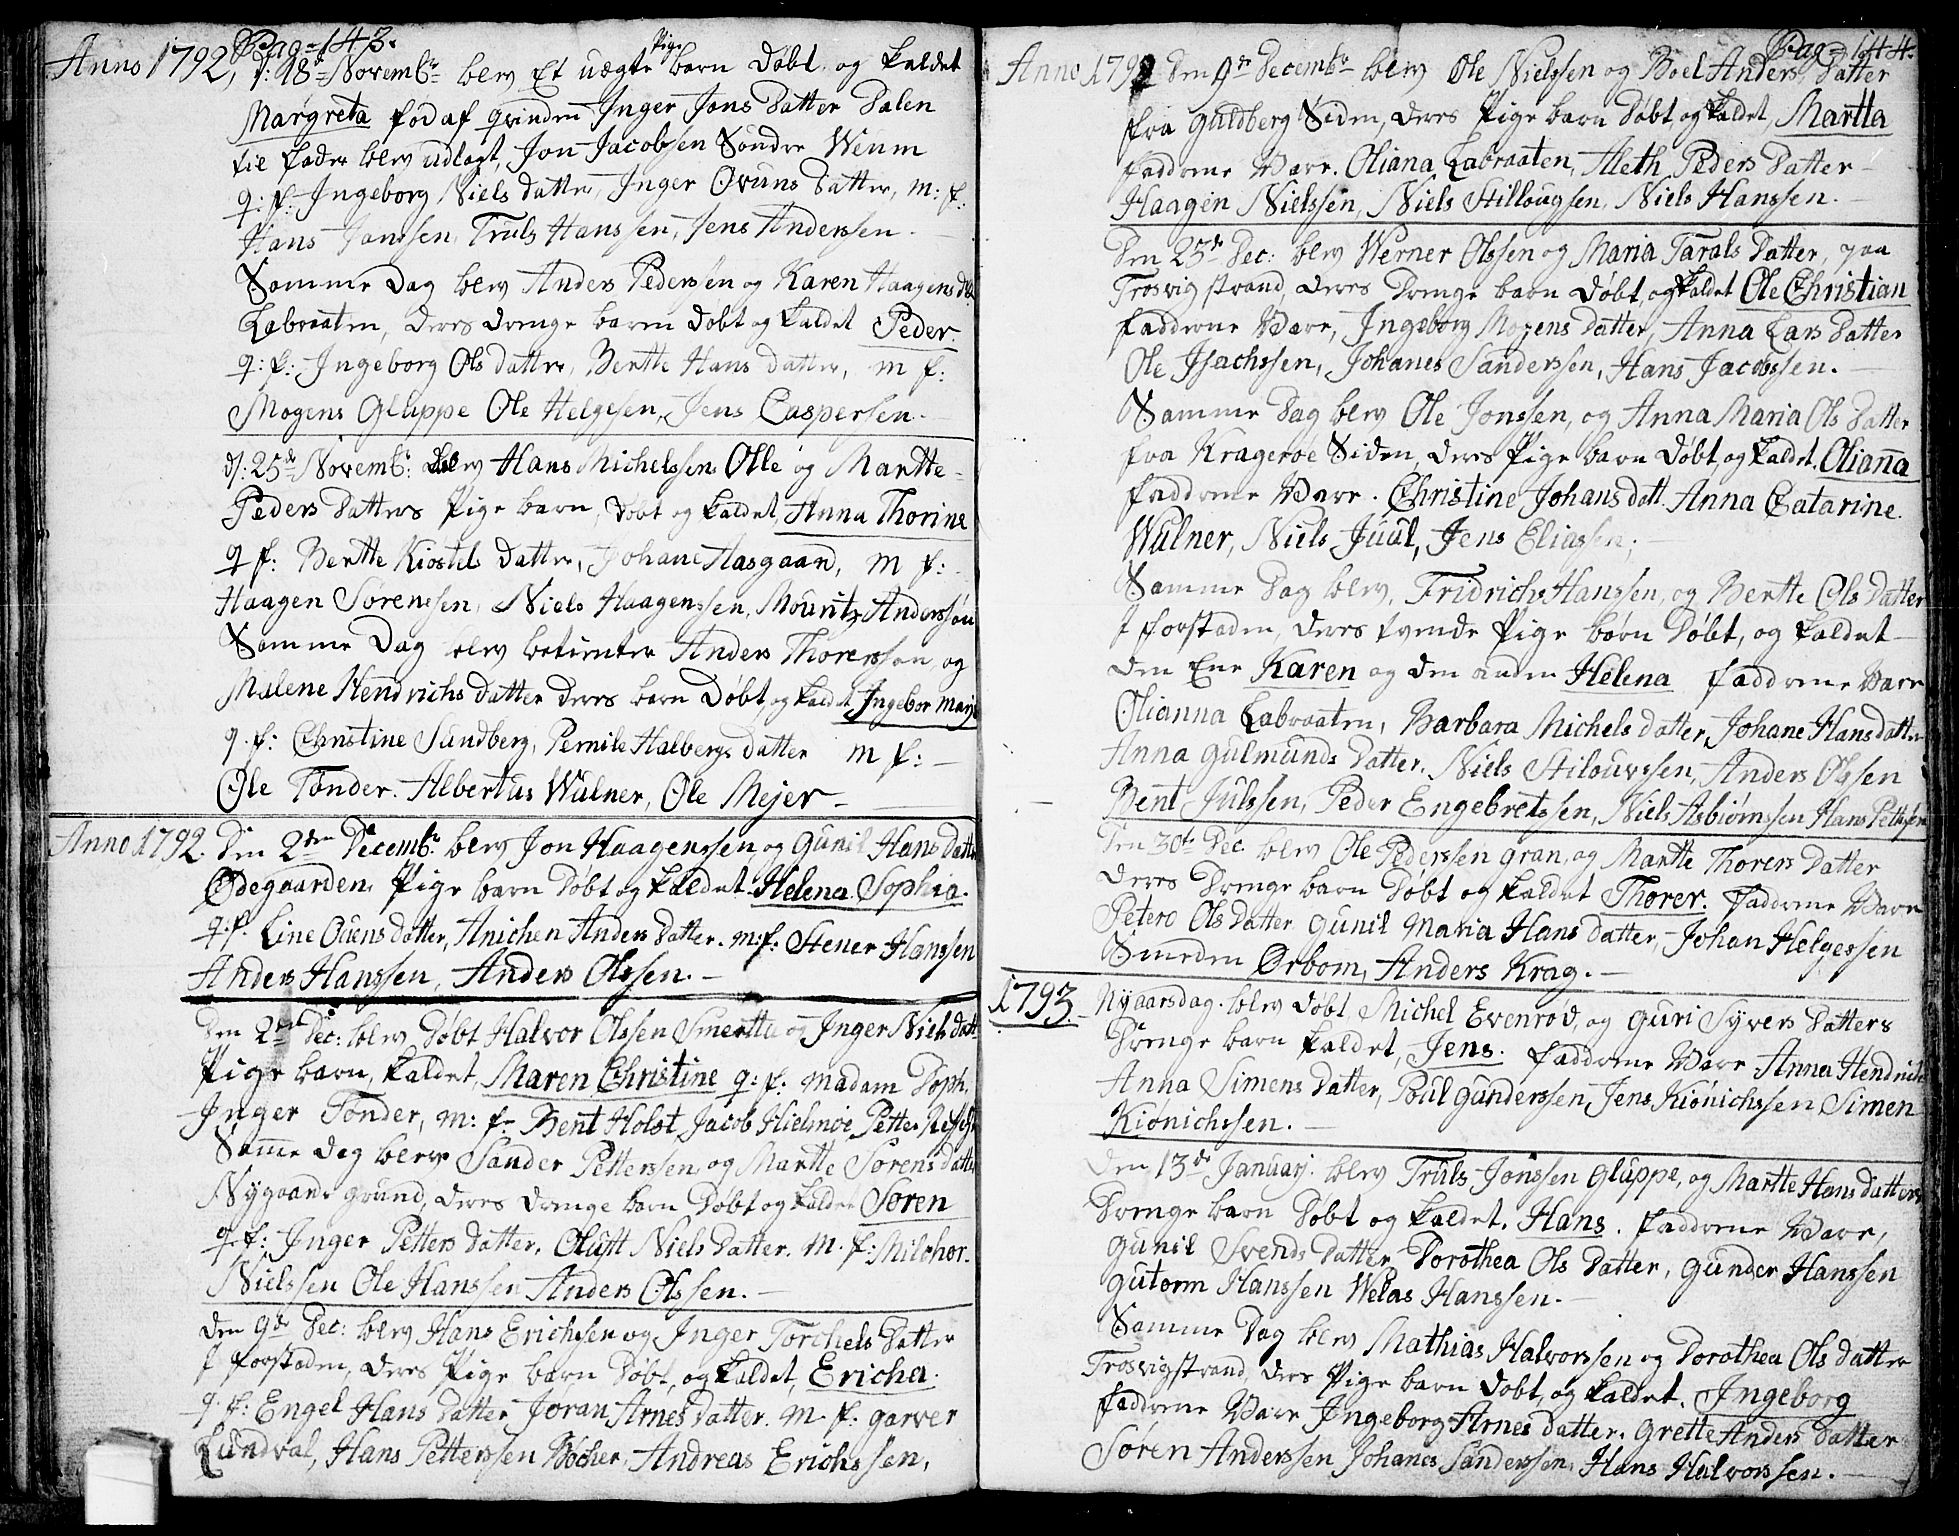 Pag: 143.
Anno 1792, d: 18de Novembr blev Et uægte Pige barn Døbt og kaldet
Margreta fød af qvinden Inger Jons Datter Dalen
til fader blev udlagt, Jon Jacobsen Søndre Weum
q: f: Ingeborg Niels datter, Inger Ovuns Datter, m: f:
Hans Jonssen, Truls Hanssen, Jens Anderssen.
Samme Dag blev Anders Pederssen og Karen Haagens dt
Labraaten, deres drenge baren døbt og kaldet Peder.
q: f: Ingeborg Ols datter, Berthe Hans datter, m f:
Mogens Gluppe Ole Helgesen, Jens Caspersen.
d: 25de Novembr: blev Hans Michelssen Olle og Marthe
Peders Datters Pige barn, døbt og kaldet, Anna Thorine
q f: Berthe Kiostels datter, Johane Aasgaard, m f:
Haagen Sørenssen, Niels Haagenssen, Mouritz Anderssøn
Samme Dag blev betienter Anders Thorerssøn, og
Malene Hendrichs datter deres barn Døbt, og kaldet Ingebor Marja
q. f: Christine Sundberg, Pernile Halbergs datter m f:
Ole Tønder. Albertus Wulner, Ole Mejer
Anno 1792. Den 2den Decembr blev Jon Haagenssen, og Gunil Hans datter
Ødegaarden, Pige barn Døbt og kaldet Helena Sophia.
q: f. Line Ouens datter, Anichen Anders Datter. m: f: Stener Hanssen
Anders Hanssen, Anders Olssen.
Den 2den Dec: blev Døbt Halvor Olssen Smertu og Inger Niels datt
Pige barn, kaldet, Maren Christine q: f. Madam Soph.
Inger Tønder, m: f- Bent Holst, Jacob Hielmøe Petter
Samme Dag blev Sander Petterssen, og Marthe Sørens datter
Nygaards grund, deres drenge barn Døbt og kaldet Søren
q. f: Inger Petters datter, Olutt Niels Datter. m. f: Milchor.
Nielssen Ole Hanssen Anders Olssen.
Den 9de Dec: blev Hans Erichssen og Inger Torchels Datter
i forstaden, deres Pige barn Døbt, og kaldet, Ericha.
q. f: Engel Hans Datter, Joran Arnes datter. m. f. garver
Lundval, Hans Petterssen Bøcher, Andreas Erichssen,
Pag: 144.
Anno 1792 Den 9de Decembr blev Ole Nielssen og Boel Anders Datter
fra Guldberg Siden, deres Pige barn Døbt, og kaldet, Martha
fadderne Vare. Oliana Labraaten, Aleth Peders Datter
Haagen Nielssen, Niels Stillougsen, Niels Hanssen.
Den 25de Dec: blev Werner Olssen og Maria Tarals Datter, paa
Trosvig strand, deres Drenge barn Døbt, og kaldet Ole Christian
fadderne Vare, Ingeborg Mogens datter, Anna Lars Datter
Ole Jsachssen, Johanes Sanderssen, Hans Jacobssen.
Samme Dag blev Ole Jonssen, og Anna Maria Ols Datter
fra Kragerøe Siden, deres Pige barn Døbt, og kaldet, Olianna
fadderne Vare. Christine Johans datt. Anna Catarine
Wulner, Niels Juul, Jens Eliassen,
Samme Dag blev, Fridrich Hanssen, og Berthe Ols Datter
i forstaden, deres tvende Pige børn Døbt, og kaldet
den Ene Karen og den anden Helena fadderne Vare
Olianna Labraaten, Barbara Michels datter, Johane Hans datter
Anna Gulmunds Datter, Niels Stilouvssen, Anders Olssen
Bent Julssen, Peder Engebretssen, Niels Asbiørnssen Hans Pettersen
Den 30te Dec blev Ole Pederssen Gran, og Marthe Thorers Datter
deres Drenge barn Døbt og kaldet Thorer. fadderne Vare
Petero Ols Datter Gunil Maria Hans datter, Johan Helgessen
Smeden Ørbom, Anders Krag.
1793. Nyaarsdag. blev døbt Michel Evenrød, og Guri Syvers Datters
Drenge barn kaldet, Jens. fadderne Vare Anna Hendrichs
Anna Simens Datter, Poul Gunderssen, Jens Kiønichssen Simen
Kiønichssen.
Den 13de Januarj. blev Truls Jonssen Gluppe, og Marthe Hans datters
Drenge barn Døbt og kaldet, Hans. fadderne Vare,
Gunil Svends Datter Dorothea Ols Datter, Gunder Hanssen
Gutorm Hanssen Welas Hanssen.
Samme Dag blev Mathias Halvorssen og Dorothea Ols datter
Trosvigstrand, deres Pige barn døbt, og kaldet, Ingeborg
fadderne Vare Ingeborg Arnes datter, Grette Anders Datter
Søren Anderssen Johanes Sanderssen, Hans Halvorssen.